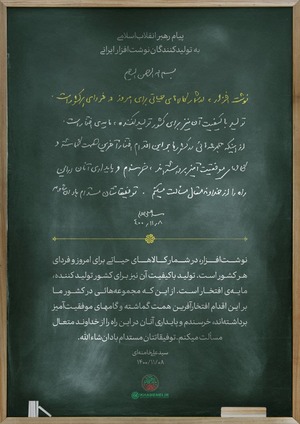 پیام رهبر انقلاب اسلامی
به تولیدکنندگان نوشت‌افزار ایرانی
بسم الله الرحمن الرحیم
نوشت افزار، در شمار کالاهای حیاتی برای امروز و فردای هر کشور است.
تولید با کیفیت آن نیز برای کشور تولیدکننده، مایه‌ی افتخار است.
از اینکه مجموعه‌هائی در کشور ما بر این اقدام افتخارآفرین همت گماشته و
گامهای موفقیت‌آمیز برداشته‌اند، خرسندم و پایداری آنان در این
راه را از خداوند متعال مسألت میکنم. توفیقاتتان مستدام باد ان‌شاءالله
۱۴۰۰/۱۱/۰۸
نوشت‌افزار، در شمار کالاهای حیاتی برای امروز و فردای
هر کشور است. تولید باکیفیت آن نیز برای کشور تولیدکننده،
مایه‌ی افتخار است. از این که مجموعه‌هائی در کشور ما
بر این اقدام افتخارآفرین همت گماشته و گامهای موفقیت‌آمیز
برداشته‌اند، خرسندم و پایداری آنان در این راه را از خداوند متعال
مسألت میکنم. توفیقاتتان مستدام باد ان‌شاءالله.
سیدعلی خامنه‌ای
۱۴۰۰/۱۱/۰۸